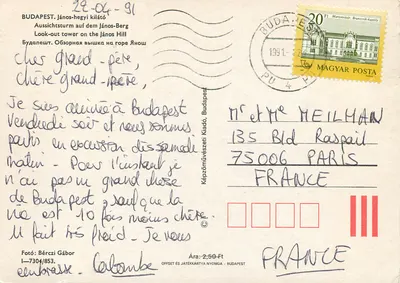 22-04-91
BUDAPEST. János-hegyi kilátó
Aussichtsturm auf dem János-Berg
Look-out tower on the János Hill
Будапешт. Обзорная вышка на горе Янош
cher grand-père,
chère grand-mère,
Je suis arrivée à Budapest
vendredi soir et nous sommes
partis en excursion dès samedi
matin - Pour l'instant je
n'ai pas vu grand chose
de Budapest, sauf que la
vie est 10 fois moins chère.
Il fait très froid - Je vous
embrasse.
Fotó: Bérczi Gábor
I-7304/853.
Képzőművészeti Kiadó, Budapest
Ára: 2,50 Ft
OFFSET ÉS JÁTÉKKÁRTYA NYOMDA - BUDAPEST
BUDAPEST
1991.
20 Ft
MAGYAR POSTA
Mr et Me MEILHAN
135 Bld Raspail
75006 PARIS
FRANCE
FRANCE